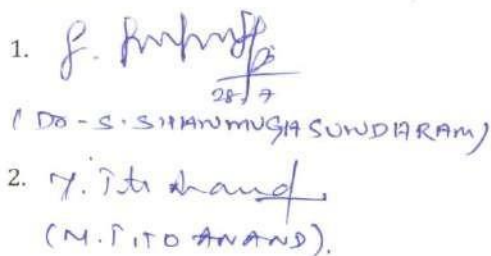 1.
28/7
(DR-S.SHANMUGHASUNDARAM)
2. M. Tito Anand
(M.TITO ANAND).